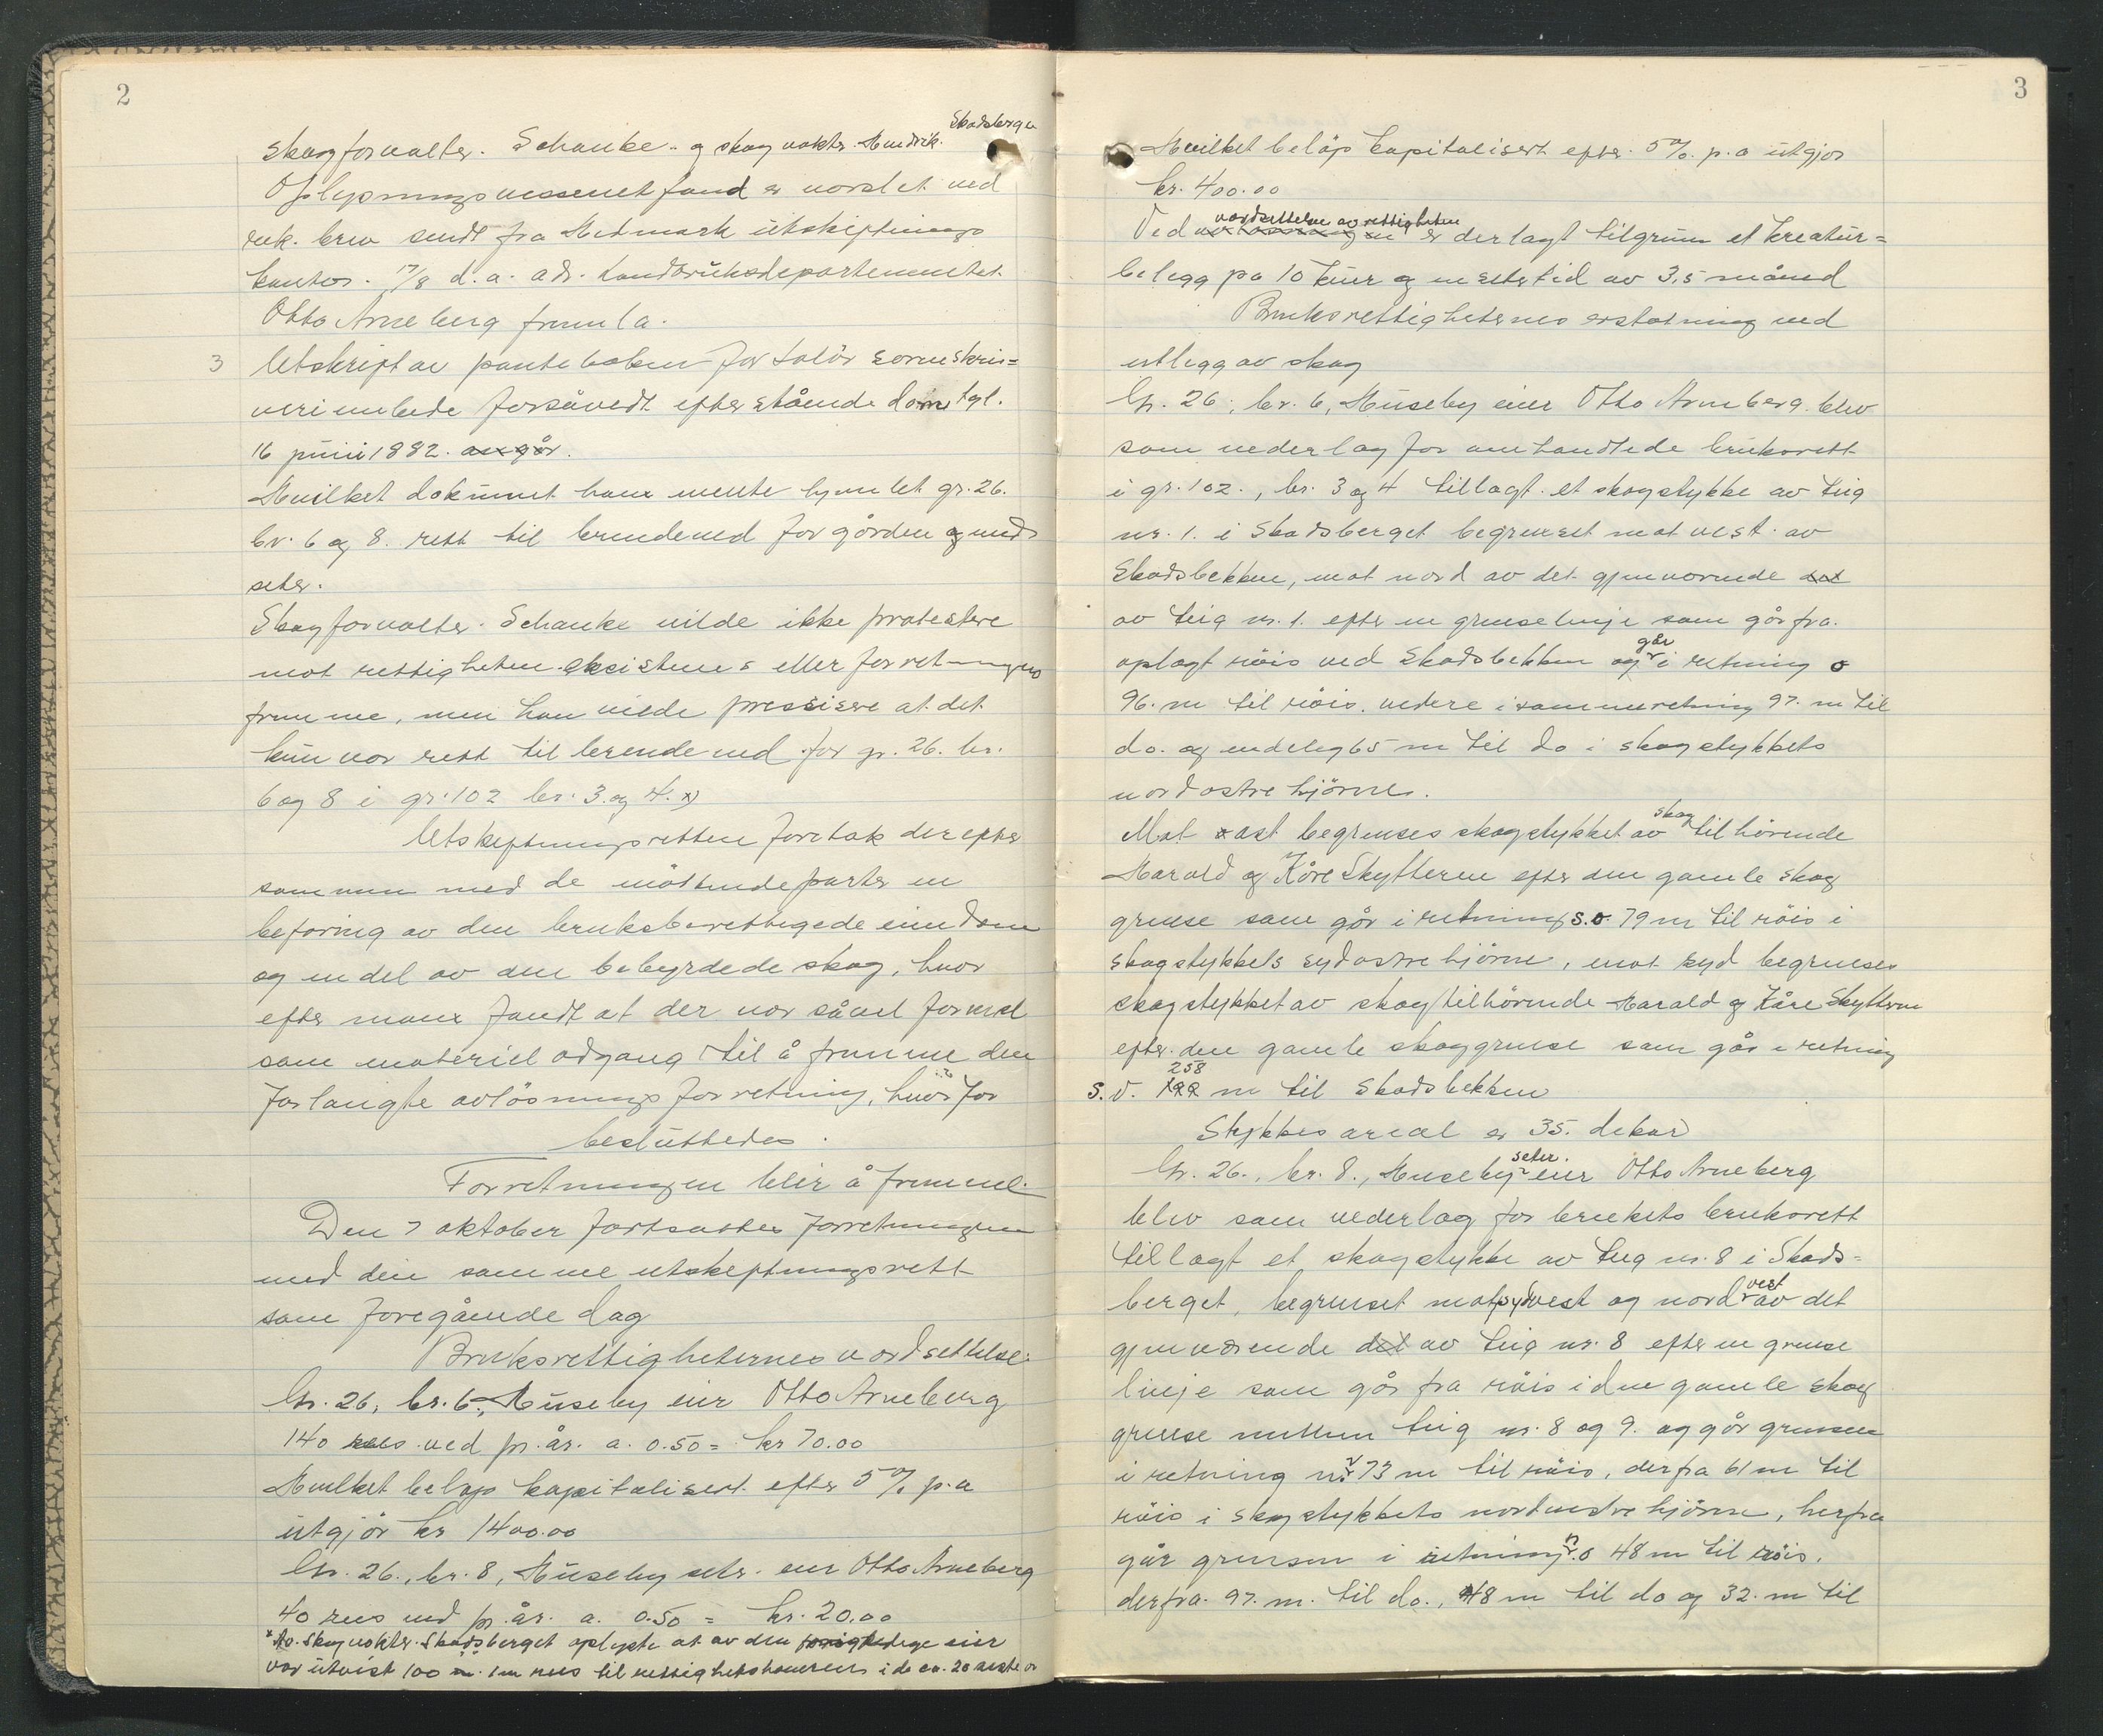 2
Skogforvalter Schanke og skogvokter Hendrik Skadsberget
Oplysningsvessenet fond er varslet ved
rek. brev sendt fra Hedmark utskiftnings
kontor 17/8 d.a. adr. Landbruksdepartementet.
Otto Arneberg fremla.
3 Utskrift av panteboken for Solör sorenskri=
veri
forsåvidt efterstående dom tgl.
16 juni 1882. angår.
Hvilket dokument han mente hjemlet gr. 26.
br. 6 og 8. rett til brendeved for gården og
seter.
Skogforvalter Schanke vilde ikke protestere
mot rettigheten eksistens eller forretningens
fremme, men han vilde pressisere at det
kun var rett til brendeved for gr. 26. br.
6 og 8 i gr. 102 br. 3. og 4. x)
Utskiftningsretten foretok derefter
sammen med de möttende parter en
befaring av den bruksberettigede eiendom
og en del av den bebyrdede skog, hvor
efter man fandt at der var såvel formel
som materiel adgang til å fremme den
forlangte avlösnings forretning, hvorfor
besluttedes.
Forretningen blir å fremme.
Den 7 oktober fortsattes forretningen
med den samme utskiftningsrett
som foregående dag
Bruksrettighetenes verdsettelse:
Gr. 26, br. 6, Huseby eier Otto Arneberg
140 ved pr. år. a. 0.50 = kr 70.00
Hvilket belöp kapitalisert efter 5 % p.a
utgjör kr 1400.00
Gr. 26., br. 8, Huseby seter eier Otto Arneberg
40 ved pr. år. a. 0.50 = kr. 20.00
x Skogvokter Skadsberget oplyste at av den eier
var utvist 100 til rettighetshaveren i de ca. 20 siste år
3
Hvilket belöp kapitalisert efter 5 % p.a utgjör
kr. 400.00
Ved verdsettelse av rettigheten er der lagt tilgrunn et kreatur=
belegg på 10 kuer og en setertid av 3,5 måned
Bruksrettighetenes erstatning ved
utlegg av skog
Gr. 26, br. 6, Huseby eier Otto Arneberg blev
som vederlag for omhandlede bruksrett
i gr. 102., br. 3 og 4 tillagt et skogstykke av teig
nr. 1. i Skadsberget begrenset mot vest av
Skadsbekken, mot nord av det gjenværende
av teig nr. 1. efter en grenselinje som går fra
oplagt röis ved Skadsbekken og går i retning o
96. m til röis. videre i samme retning 97. m til
do. og endelig 65 m til do i skogstykkets
nordöstre hjörne.
Mot öst begrenses skogstykket av skog tilhörende
Harald og Kåre Skytteren efter den gamle skog
grense som går i retning s.o. 79 m til röis i
skogstykkets sydöstre hjörne, mot syd begrenses
skogstykket av skog tilhörende Harald og Kåre Skytteren
efter den gamle skoggrense som går i retning
s.v. 258 m til Skadsbekken
Stykkes areal er 35. dekar
Gr. 26., br. 8., Huseby seter. eier Otto Arneberg
blev som vederlag for brukets bruksrett
tillagt et skogstykke av teig nr. 8 i Skads=
berget, begrenset mot sydvest og nordvest av det
gjenværende av teig nr. 8 efter en grense
linje som går fra röis i den gamle skog
grense mellem teig nr. 8 og 9. og går grensen
i retning n.v. 73 m til röis, derfra 61 m til
röis i skogstykkets nordvestre hjörne, herfra
går grensen i retning n.o 48 m til röis.
derfra. 97. m. til do., 48 m til do og 32. m til